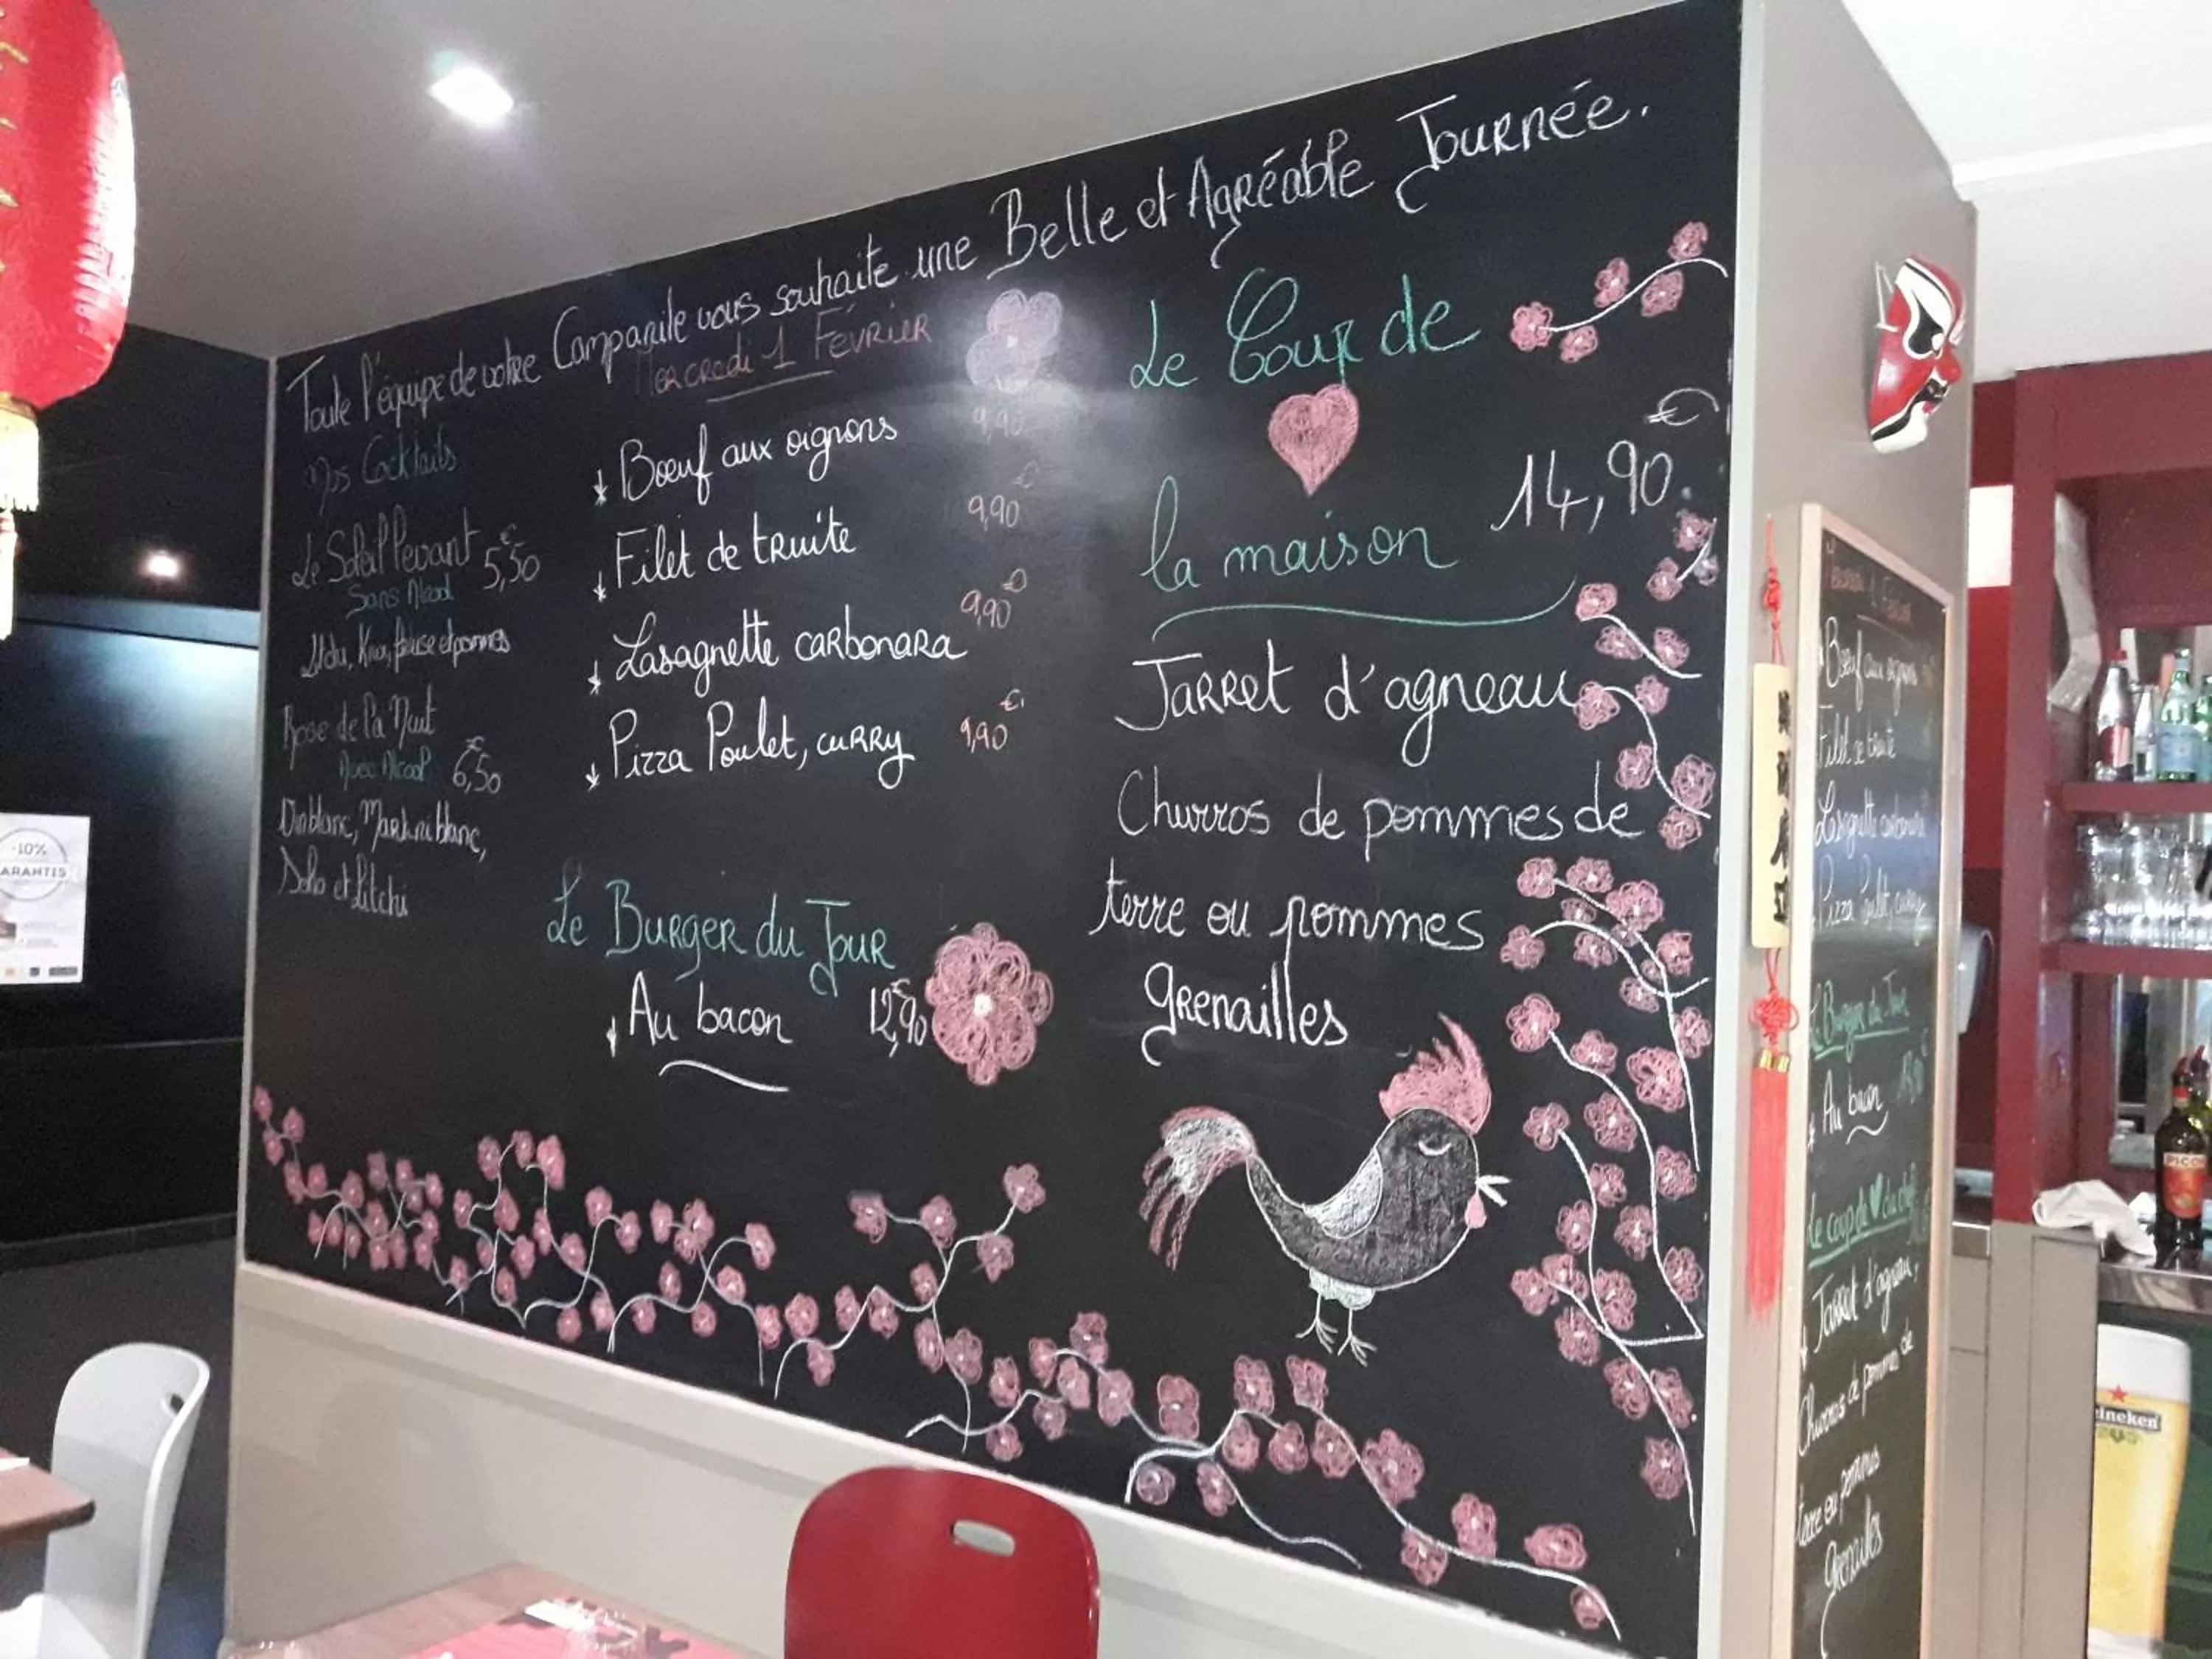 Toute l'équipe de votre Campanile vous souhaite une Belle et Agréable Journée.
Mercredi 1 Février
Nos Cocktails
Le Soleil Levant 5,50€
Sans Alcool
Kiwi, fraise et pommes
Rose de la Nuit
Avec Alcool 6,50€
Vin blanc, Martini blanc,
Soho et Litchi
Bœuf aux oignons 9,90
Filet de truite 9,90€
Lasagnette carbonara 9,90€
Pizza Poulet, curry 9,90€
Le Burger du Jour
Au bacon 12,90€
Le Coup de
la maison 14,90€
Jarret d'agneau
Churros de pommes de
terre ou pommes
grenailles
1 Février
Bœuf aux oignons
Filet de truite
Lasagnette carbonara
Pizza Poulet, curry
Le Burger du Jour
Au bacon
Le coup du ♥ du chef
Jarret d'agneau,
Churros de pommes de
terre ou pommes
grenailles
-10%
ARANTIS
PICON
eineken